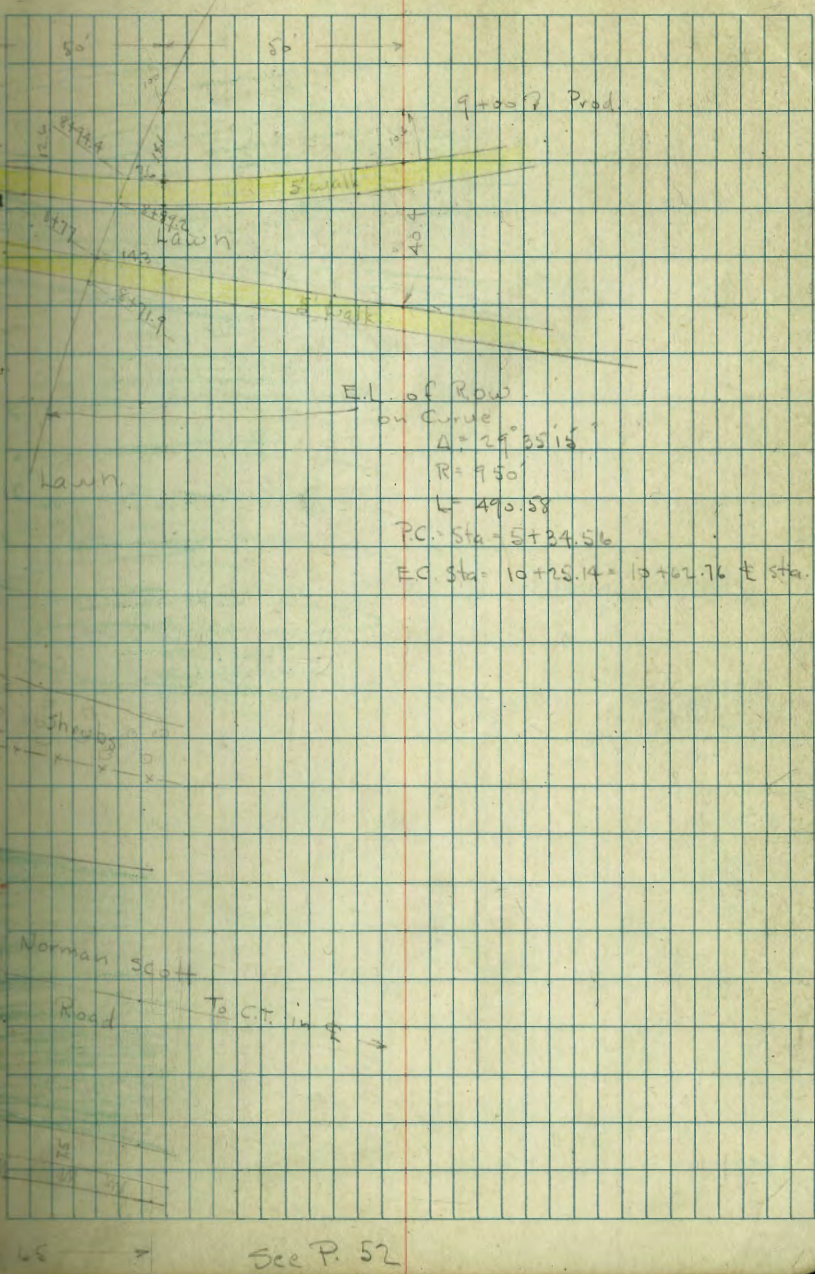 50' 50'
9+00 Prod.
8+94.4
5' walk
8+77
Lawn
14.3
40.4
8+71.9
5' walk
E.L. of Row
on Curve
Δ = 29°35'15"
R = 950'
L = 490.58
P.C. = Sta = 5+34.56
E.C. Sta = 10+25.14 = 10+62.76 ℄ Sta.
Lawn
Shrubs
Norman Scott
Road To C.T. in ℄
65
See P. 52